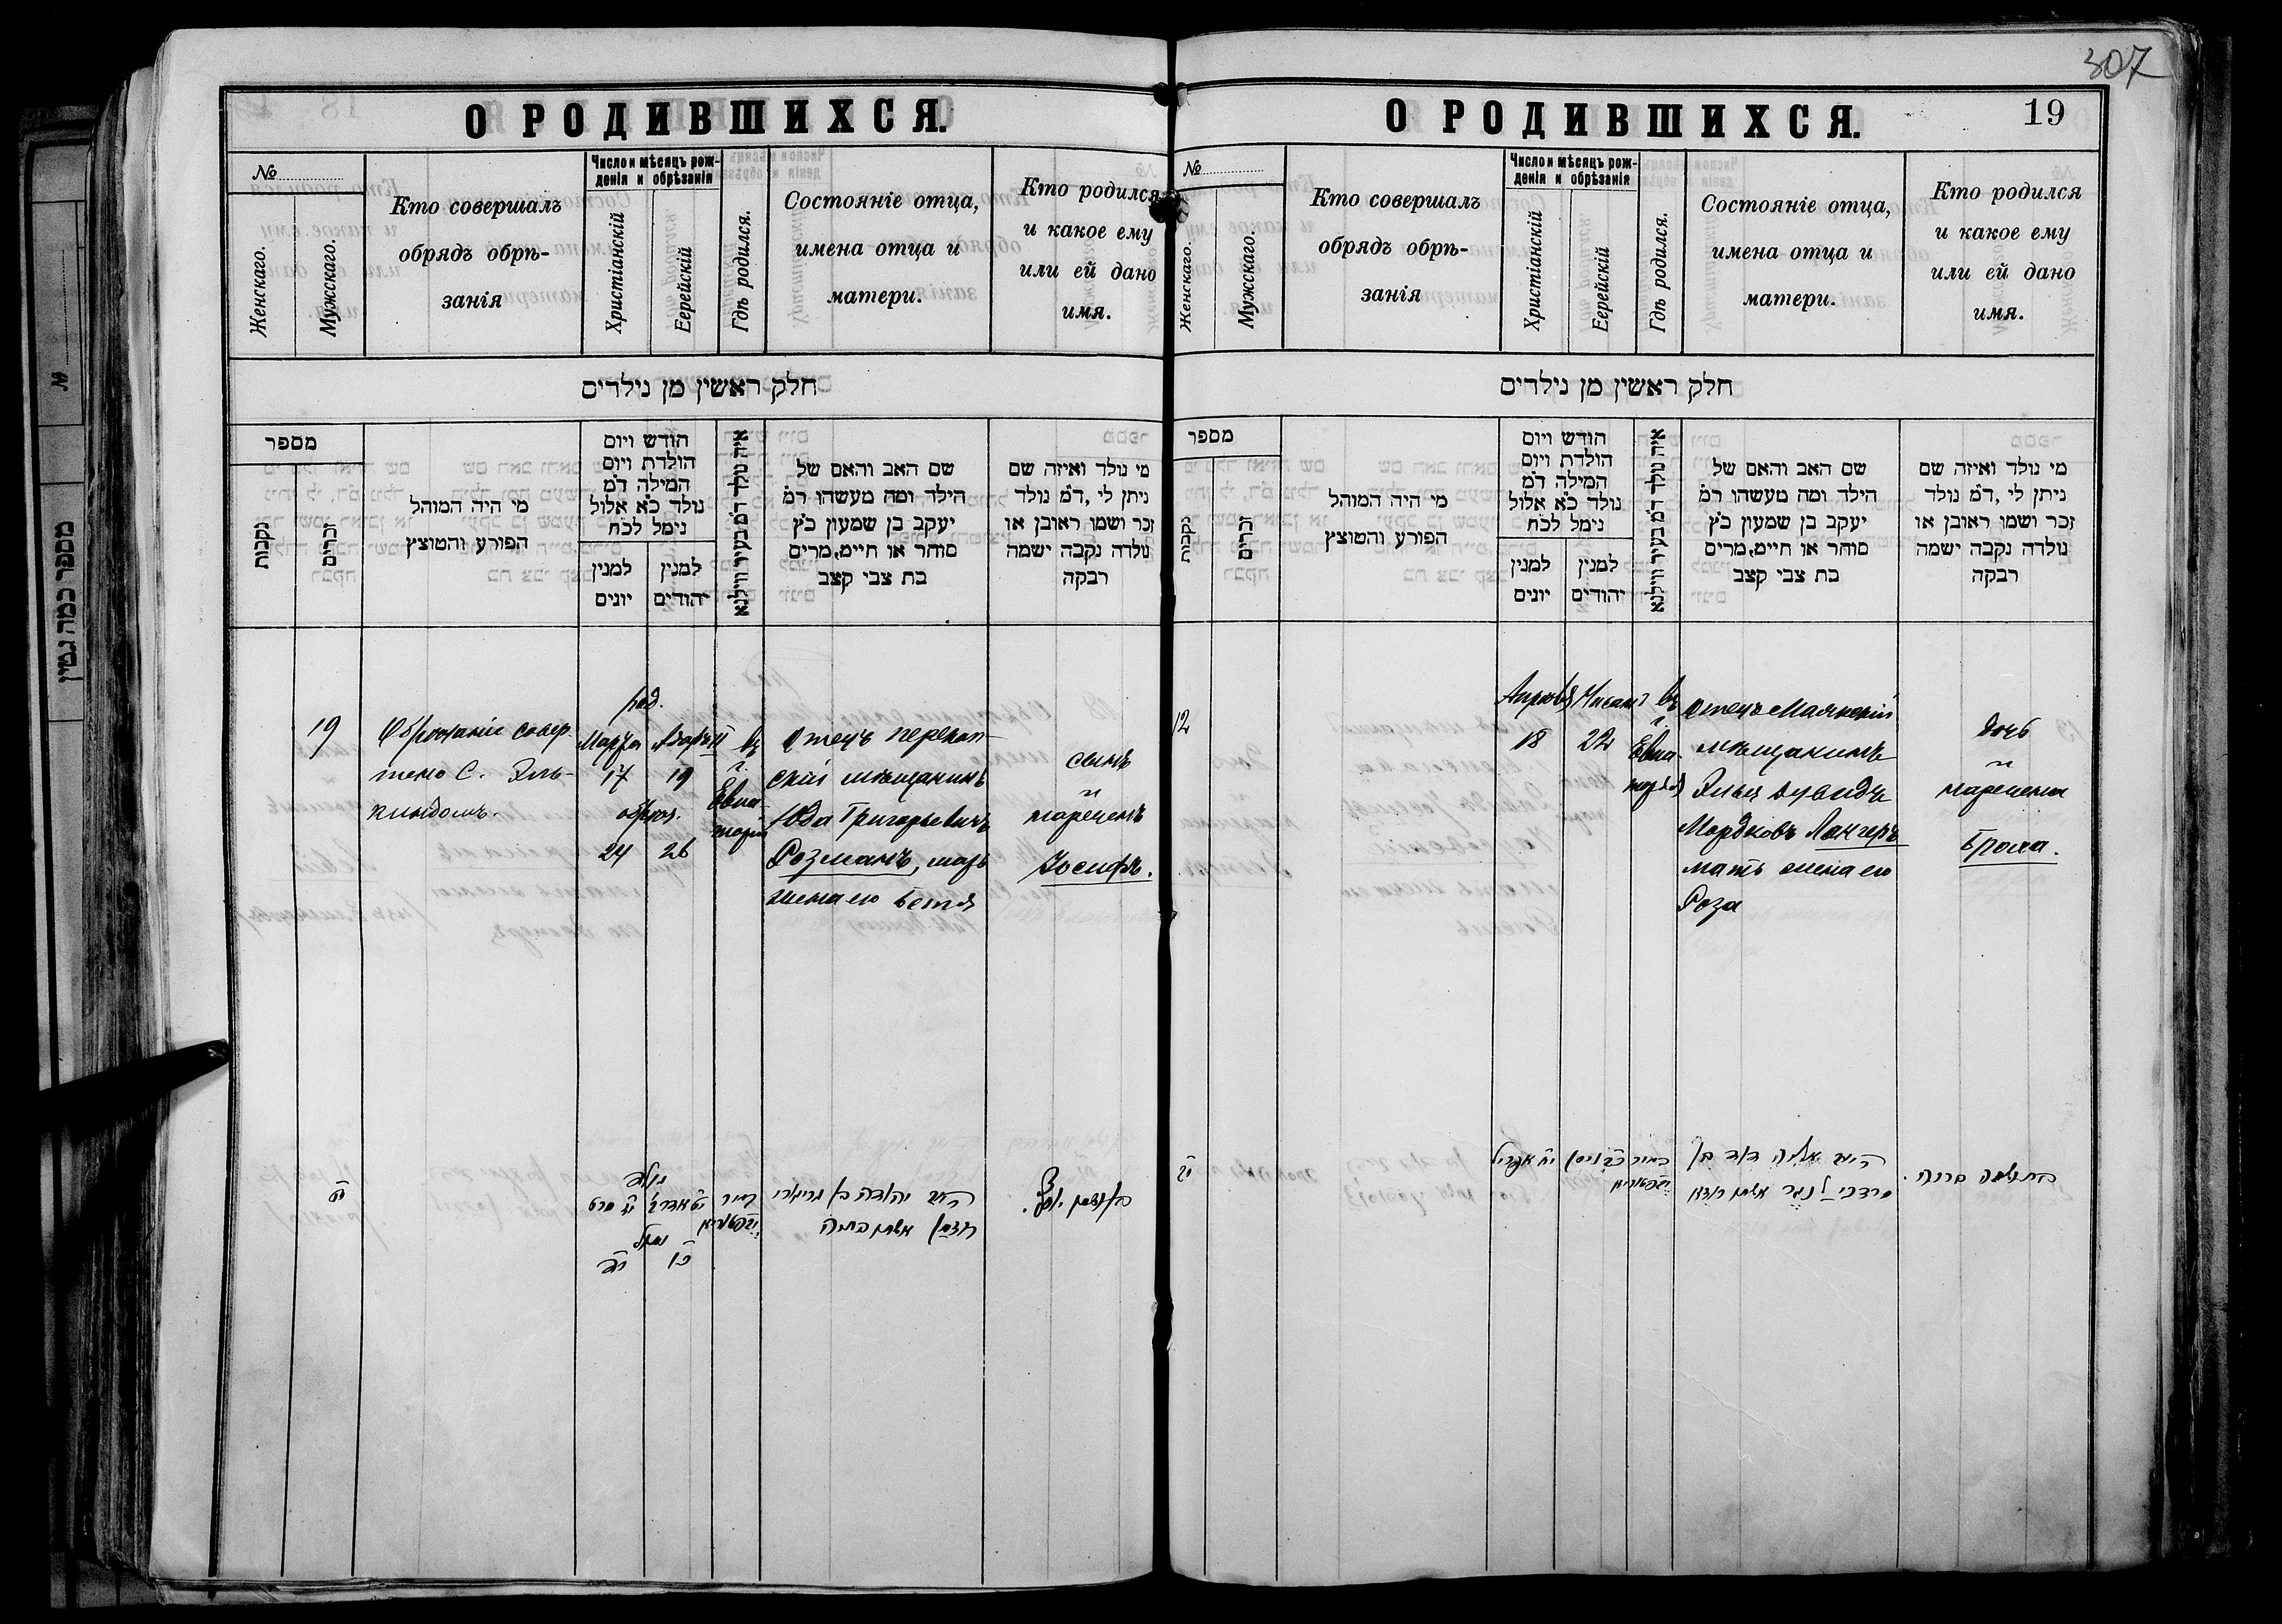 307
О РОДИВШИХСЯ.
№
Женскаго.
Мужскаго.
Кто совершалъ
обрядъ обрѣ-
занія
Число и мѣсяцъ рож-
денія и обрѣзанія
Христіанскій
Еврейскій
Гдѣ родился.
Состояніе отца,
имена отца и
матери.
Кто родился
и какое ему
или ей дано
имя.
חלק ראשון מן נילדים
מספר
נקבות
זכרים
מי היה המוהל
הפורע והמוצץ
הודש ויום
הולדת ויום
המילה ד״מ
נולד כ״א אלול
נימל לכ״ח
למנין
יונים
למנין
יהודים
איה נולד ד״מ בעיר ווילנא
שם האב והאם של
הילד ומה מעשהו ד״מ
יעקב בן שמעון כ״ץ
סוחר או חיים, מרים
בת צבי קצב
מי נולד ואיזה שם
ניתן לי, ד״מ נולד
זכר ושמו ראובן או
נולדה נקבה ישמה
רבקה
19
Обрѣзаніе совер-
шено С. Эль-
киндомъ.
род.
Марта
17
Адаръ II
19
обрѣз.
24 26
въ
г.
Евпа-
торіи
Отецъ перекоп-
скій мѣщанинъ
Юда Григорьевичъ
Розманъ, мать
жена его Бетя
сынъ
и
нареченъ
Іосифъ.
י״ט
נולד
נימול
כ״ו
בעיר
הא׳ יהודה בן גריגורי
רוזמן אשתו בתיה
О РОДИВШИХСЯ.
19
№
Женскаго.
Мужскаго.
Кто совершалъ
обрядъ обрѣ-
занія
Число и мѣсяцъ рож-
денія и обрѣзанія
Христіанскій
Еврейскій
Гдѣ родился.
Состояніе отца,
имена отца и
матери.
Кто родился
и какое ему
или ей дано
имя.
חלק ראשון מן נילדים
מספר
נקבות
זכרים
מי היה המוהל
הפורע והמוצץ
הודש ויום
הולדת ויום
המילה ד״מ
נולד כ״א אלול
נימל לכ״ח
למנין
יונים
למנין
יהודים
איה נולד ד״מ בעיר ווילנא
שם האב והאם של
הילד ומה מעשהו ד״מ
יעקב בן שמעון כ״ץ
סוחר או חיים, מרים
בת צבי קצב
מי נולד ואיזה שם
ניתן לי, ד״מ נולד
זכר ושמו ראובן או
נולדה נקבה ישמה
רבקה
12
Апрѣля
18
Нисанъ
22
въ
г.
Евпа-
торіи
Отецъ Маякскій
мѣщанинъ
Элья Дувидъ
Мордковъ Лангеръ
мать жена его
Роза
дочь
и
наречена
Броха.
י״ב
י״ח אפריל
כ״ב ניסן
בעיר
אליה דוד בן
מרדכי לנגר אשתו רוזא
בת ושמה ברכה.
מספר כמה גטין
№